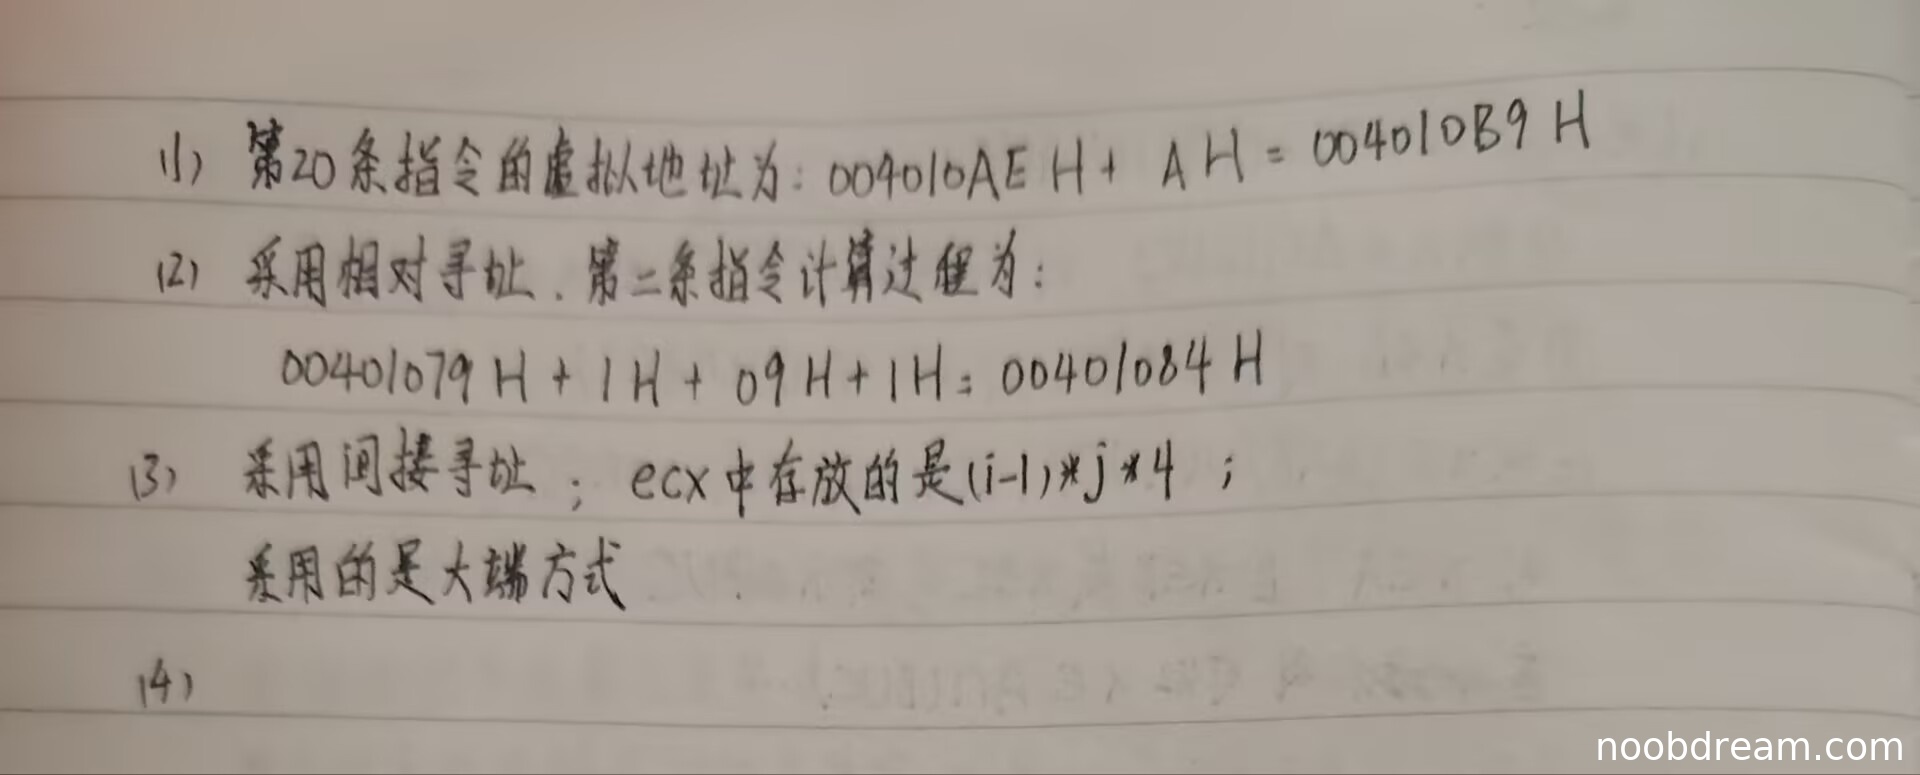 (1) 第20条指令的虚拟地址为：004010AE H + A H = 004010B9 H
(2) 采用相对寻址．第二条指令计算过程为：
00401079 H + 1 H + 09 H + 1 H = 00401084 H
(3) 采用间接寻址；ecx中存放的是(i-1)*j*4；
采用的是大端方式
(4)
noobdream.com